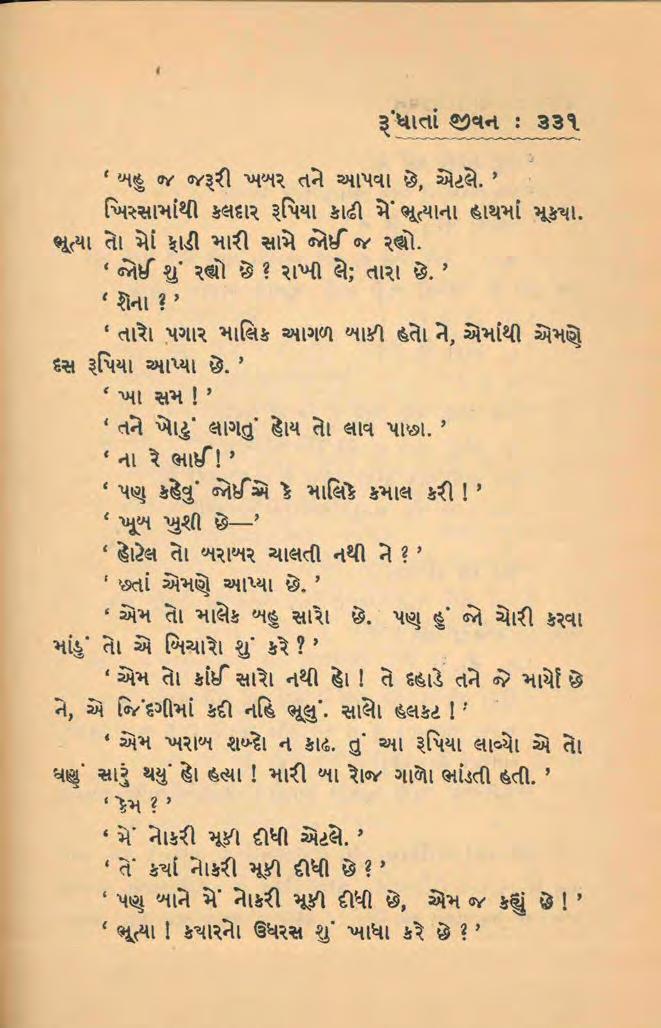 રૂંધાતાં જીવન : ૩૩૧
‘ બહુ જ જરૂરી ખબર તને આપવા છે, એટલે. ’
ખિસ્સામાંથી કલદાર રૂપિયા કાઢી મેં ભૂત્યાના હાથમાં મૂક્યા.
ભૂત્યા તો મોં ફાડી મારી સામે જોઈ જ રહ્યો.
‘ જોઈ શું રહ્યો છે ? રાખી લે; તારા છે. ’
‘ શેના ? ’
‘ તારો પગાર માલિક આગળ બાકી હતો ને, એમાંથી એમણે
દસ રૂપિયા આપ્યા છે. ’
‘ ખા સમ ! ’
‘ તને ખોટું લાગતું હોય તો લાવ પાછા. ’
‘ ના રે ભાઈ! ’
‘ પણ કહેવું જોઈએ કે માલિકે કમાલ કરી ! ’
‘ ખૂબ ખુશી છે—’
‘ હોટેલ તો બરાબર ચાલતી નથી ને ? ’
‘ છતાં એમણે આપ્યા છે. ’
‘ એમ તો માલેક બહુ સારો છે. પણ હું જો ચોરી કરવા
માંડું તો એ બિચારો શું કરે ? ’
‘ એમ તો કાંઈ સારો નથી હો ! તે દહાડે તને જે માર્યો છે
ને, એ જિંદગીમાં કદી નહિ ભૂલું. સાલો હલકટ ! ’
‘ એમ ખરાબ શબ્દો ન કાઢ. તું આ રૂપિયા લાવ્યો એ તો
ઘણું સારું થયું હો હત્યા ! મારી બા રોજ ગાળો ભાંડતી હતી. ’
‘ કેમ ? ’
‘ મેં નોકરી મૂકી દીધી એટલે. ’
‘ તેં ક્યાં નોકરી મૂકી દીધી છે ? ’
‘ પણ બાને મેં નોકરી મૂકી દીધી છે, એમ જ કહ્યું છે ! ’
‘ ભૂત્યા ! ક્યારનો ઉધરસ શું ખાધા કરે છે ? ’